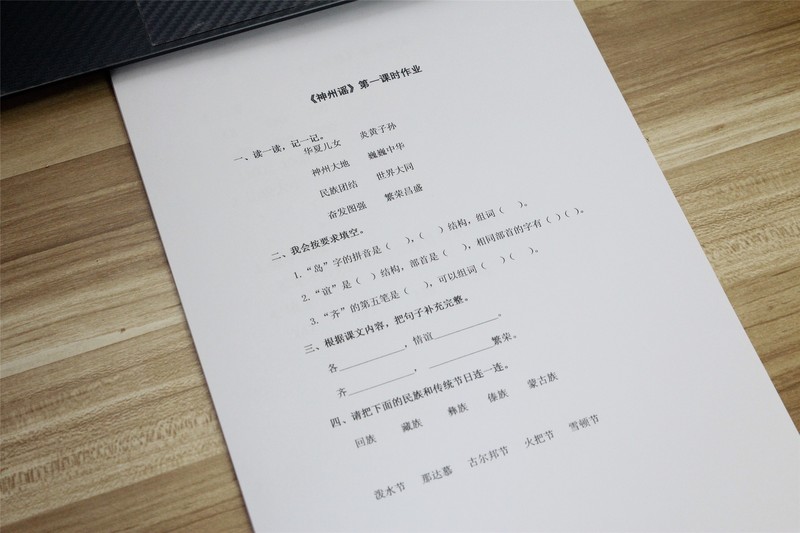 《神州谣》第一课时作业
一、读一读，记一记。
华夏儿女 炎黄子孙
神州大地 巍巍中华
民族团结 世界大同
奋发图强 繁荣昌盛
二、我会按要求填空。
1.“岛”字的拼音是（ ），（ ）结构，组词（ ）。
2.“谊”是（ ）结构，部首是（ ），相同部首的字有（ ）（ ）。
3.“齐”的第五笔是（ ），可以组词（ ）（ ）。
三、根据课文内容，把句子补充完整。
各____________，情谊____________。
齐____________，____________繁荣。
四、请把下面的民族和传统节日连一连。
回族 藏族 彝族 傣族 蒙古族
泼水节 那达慕 古尔邦节 火把节 雪顿节